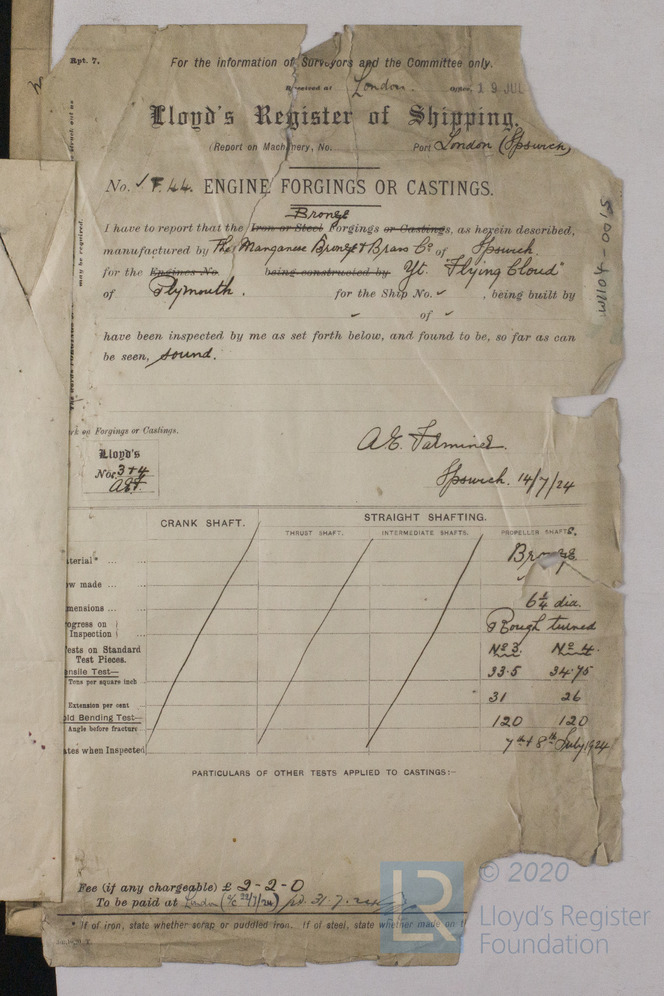 Rpt. 7.
For the information of Surveyors and the Committee only.
Received at London. Office 19 JUL
Lloyd's Register of Shipping.
(Report on Machinery, No. Port London (Ipswich)
No. 1 F. 44. ENGINE FORGINGS OR CASTINGS.
Bronze
I have to report that the Iron or Steel Forgings or Castings, as herein described,
manufactured by The Manganese Bronze & Brass Co of Ipswich.
for the Engines No. being constructed by Yt. "Flying Cloud"
of Plymouth. for the Ship No. ✓, being built by
✓ of ✓
have been inspected by me as set forth below, and found to be, so far as can
be seen, sound.
may be required.
W1104-0015
rk on Forgings or Castings.
Lloyd's
Nos. 3 & 4
Ipswich. 14/7/24
CRANK SHAFT. STRAIGHT SHAFTING.
THRUST SHAFT. INTERMEDIATE SHAFTS. PROPELLER SHAFTS.
terial* ... ... Bronze
w made ... ... ✓
mensions ... ... 6 1/4 dia.
ogress on
Inspection Rough turned
ests on Standard
Test Pieces. No 3. No 4.
ensile Test—
Tons per square inch 33.5 34.75
Extension per cent 31 26
ld Bending Test—
Angle before fracture 120 120
tes when Inspected 7th & 8th July 1924
PARTICULARS OF OTHER TESTS APPLIED TO CASTINGS:—
Fee (if any chargeable) £ 2-2-0
To be paid at London
* If of iron, state whether scrap or puddled iron. If of steel, state whether made on
LR
© 2020
Lloyd's Register
Foundation